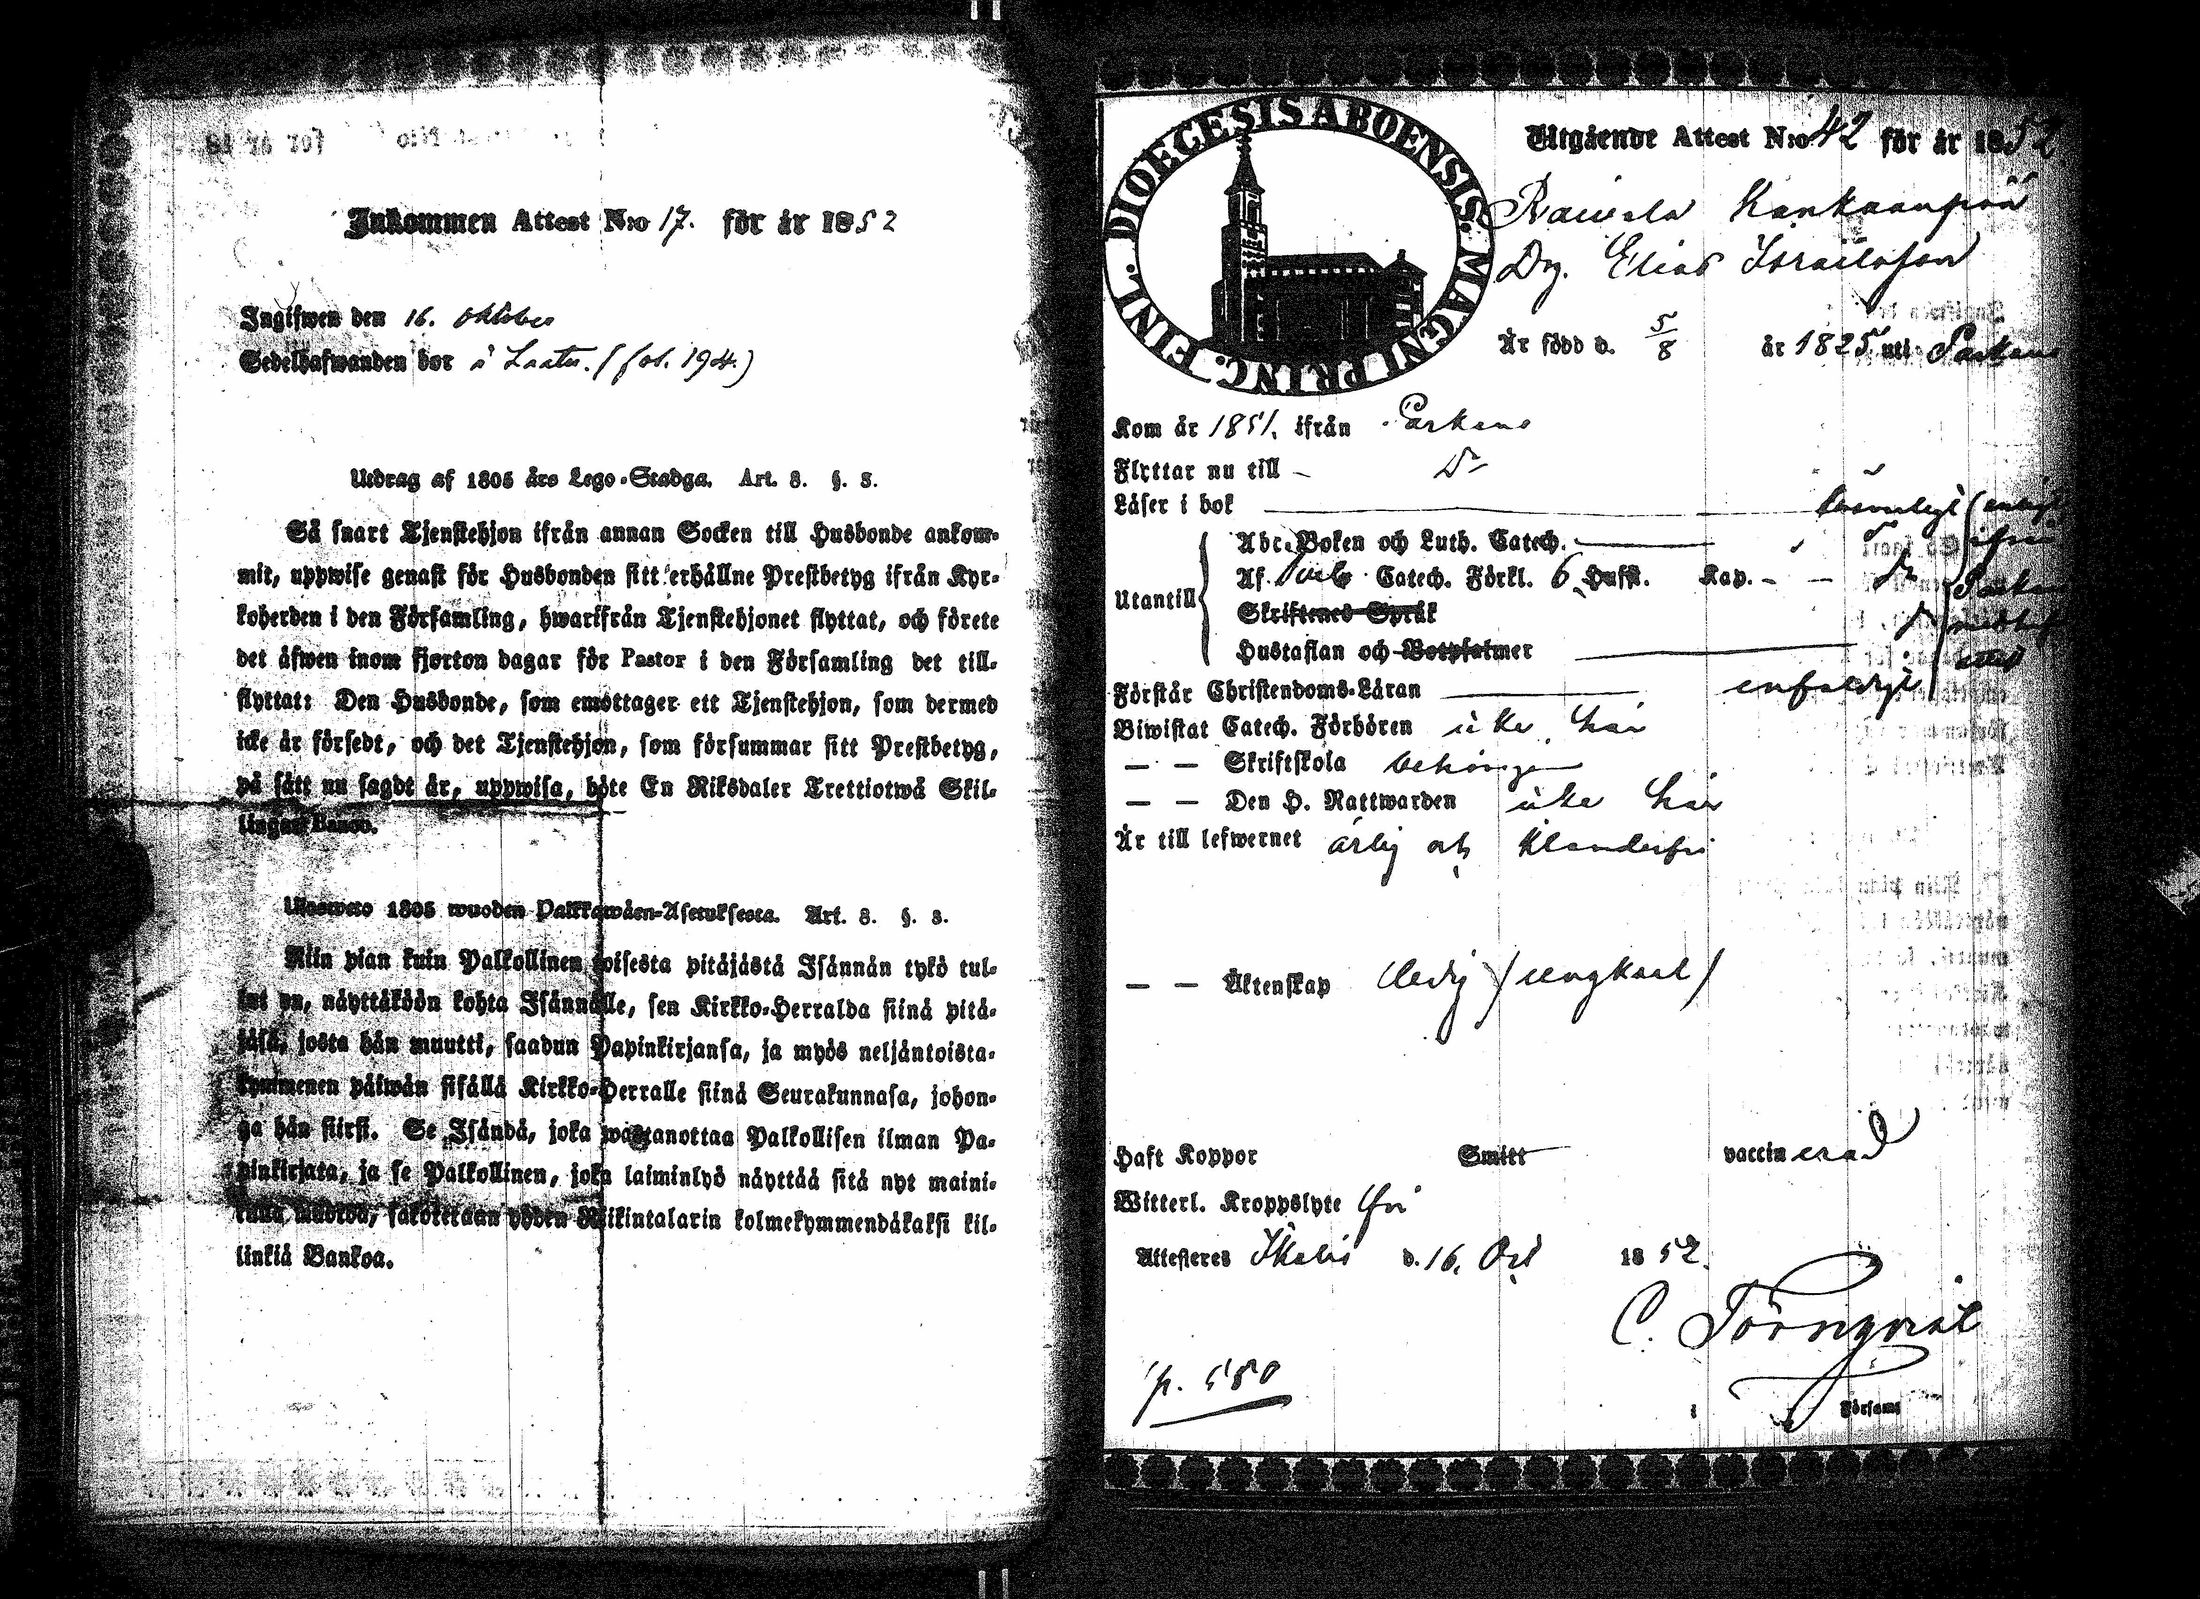 Inkommen Attest N:o 17. för år 1852
Ingifwen den 16. oktober
Sedelhafwanden bor å Laatu. (fol. 194.)
Utdrag af 1805 års Lego-Stadga. Art. 8. §. 3.
Så snart Tjenstehjon ifrån annan Socken till Husbonde ankom-
mit, uppwise genast för Husbonden sitt erhållne Prestbetyg ifrån Kyr-
koherden i den Församling, hwarifrån Tjenstehjonet flyttat, och förete
det äfwen inom fjorton dagar för Pastor i den Församling det till-
flyttat: Den Husbonde, som emottager ett Tjenstehjon, som dermed
icke är försedt, och det Tjenstehjon, som försummar sitt Prestbetyg,
på sätt nu sagdt är, uppwisa, böte En Riksdaler Trettiotwå Skil-
lingar Banco.
Uloswето 1805 wuoden Palkkawäen-Asetuksesta. Art. 8. §. 3.
Niin pian kuin Palkollinen toisesta pitäjästä Isännän tykö tul-
lut on, näyttäköön kohta Isännälle, sen Kirkko-Herralda siinä pitä-
jäsä, josta hän muutti, saadun Papinkirjansa, ja myös neljäntoista-
kymmenen päiwän sisällä Kirkko-Herralle siinä Seurakunnasa, johon-
ga hän siirsi. Se Isändä, joka wastanottaa Palkollisen ilman Pa-
pinkirjata, ja se Palkollinen, joka laiminlyö näyttää sitä nyt maini-
tulla muodon, sakotetaan yhden Riikintalarin kolmekymmendäkaksi kil-
linkiä Bankoa.
DIOECESIS ABOENSIS. MAGNI PRINC. FINL.
Utgående Attest N:o 42 för år 1852
Kankaanpää
Dg. Elias Israelsson
Är född d. 5/8 år 1825 uti Parkano
Kom år 1851. ifrån Parkano
Flyttar nu till – Do
Läser i bok
Abc-Boken och Luth. Catech.
Af Catech. Förkl. 6 Hufst. Kap.
Utantill
Skriftenes Språk
Hustaflan och Botpsalmer
enligt
ifrån
Parkano
attest
Förstår Christendoms-Läran enfaldigt
Biwistat Catech. Förhören icke här
— — Skriftskola behörigen
— — Den H. Nattwarden icke här
Är till lefwernet ärlig och klanderfri
— — Äktenskap Ledig (ungkarl)
Haft Koppor Smitt vaccinerad
Witterl. Kroppslyte fri
Attesteres Ikalis d. 16. Oct 1852.
C. Törnqvist
p. 580
Förfaml